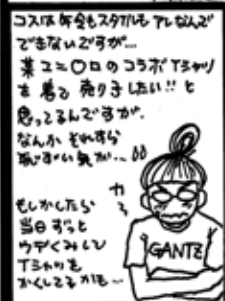 コスは年令もスタイルもアレなんで
できないですが…
某ユニ〇ロのコラボTシャツ
を着て売り子したい!!と
思ってるんですが、
なんか それすら
恥ずかしい気が…
もしかしたら
当日ずっと
ウデくみして
Tシャツを
かくしてるかも…
カ〜
GANTZ